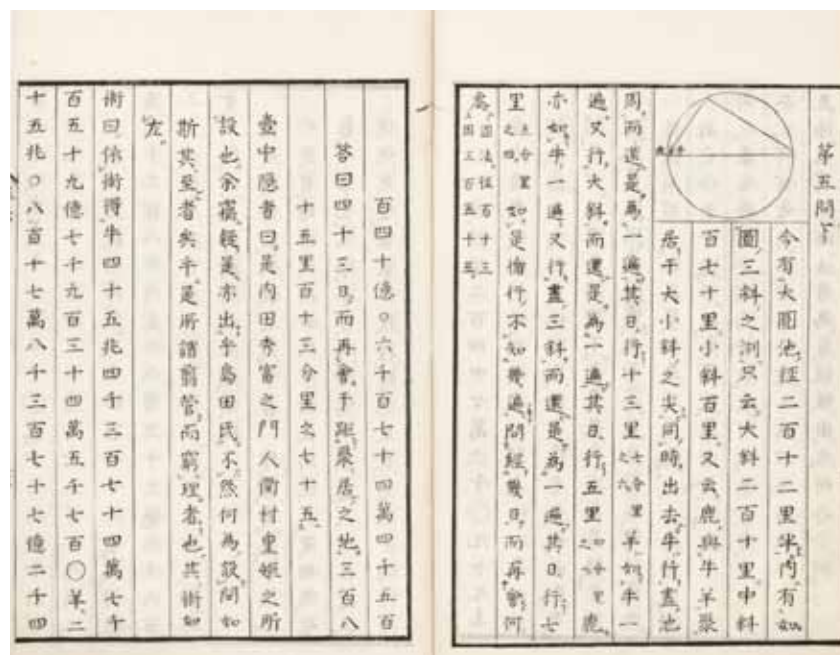 第五問
今有大圓池徑二百十二里半內有如
圖三斜之渕只云大斜二百十里中斜
百七十里小斜百里又云鹿與牛羊聚
居于大小斜之尖同時出去牛行盡池
周而還是為一遍其日行十三里七分里之六羊如牛一
遍又行大斜而還是為一遍其日行五里鹿
亦如牛一遍又行盡三斜而還是為一遍其日行七
里五分里之四如是行不知幾遍問經幾日而再會何
處圓法徑百十三周三百五十五
百四十億〇六千百七十四萬四千五百
答曰四十三日而再會于距聚居之地三百八
十五里百十三分里之七十五
壺中隱者曰是內田秀富之門人村重矩之所
設也余竊疑是亦出乎島田氏不然何為設問如
斯其至者矣乎是所謂管而窮理者也其術如
左
術曰依術得牛四十五兆四千三百七十四萬七千
百五十九億七千九百三十四萬五千七百〇羊二
十五兆〇八百十七萬八千三百七十七億二千四